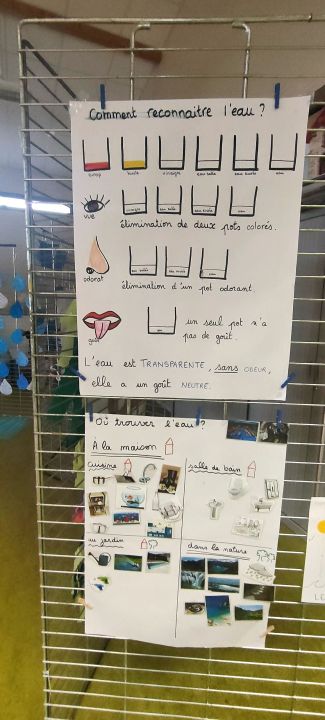 Comment reconnaitre l'eau ?
sirop huile vinaigre eau salée eau sucrée eau
vue
vinaigre eau salée eau sucrée eau
élimination de deux pots colorés.
odorat
eau salée eau sucrée eau
élimination d'un pot odorant.
goût
eau
un seul pot n'a
pas de goût.
L'eau est TRANSPARENTE, sans ODEUR,
elle a un goût NEUTRE.
Où trouver l'eau ?
À la maison
cuisine
salle de bain
au jardin
dans la nature
LE